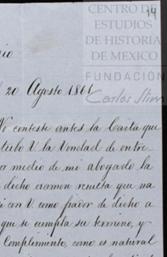 14
CENTRO DE
ESTUDIOS
DE HISTORIA
DE MEXICO
FUNDACIÓN
Carlos Slim
20 Agosto 1866
contesté antes la Carta que
V. la bondad de
medio de mi abogado la
dicho examen resulta que
con V. como fiador de dicho a
que se cumpla su termino, y
Complemento, como es natural